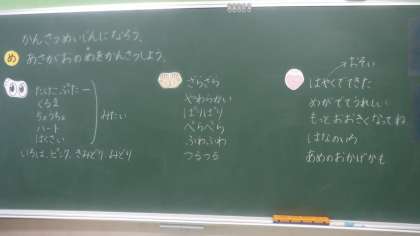 かんさつめいじんになろう。
め
あさがおのめをかんさつしよう。
くるま
ちょうちょ
ハート
みたい
いろは、ピンク、きみどり、みどり
さらさら
やわらかい
ぱりぱり
ぺらぺら
ふわふわ
つるつる
おそい
はやくでてきた
めがでてうれしい
もっとおおきくなってね
はなのいろ
あめのおかげかも